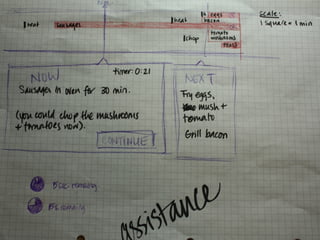 Scale:
1 square = 1 min
heat
sausages
heat
eggs
bacon
chop
tomato
mushrooms
toast
NOW
timer: 0:21
Sausages in oven for 30 min.
(you could chop the mushrooms
+ tomatoes now).
CONTINUE
NEXT
Fry eggs,
mush +
tomato
Grill bacon
assistance